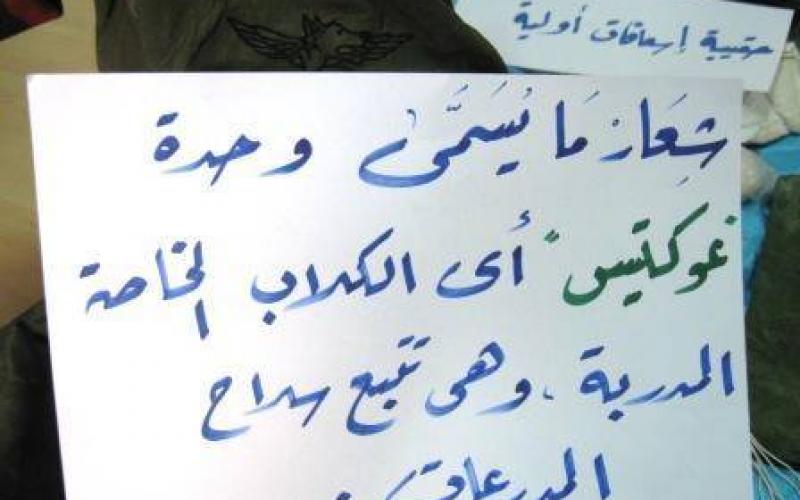 حقيبة إسعافات أولية
شِعَار مَا يُسَمَّى وحدة
"عوكتيس" أى الكلاب الخاصة
المدربة ، وهى تتبع سلاح
المدرعات